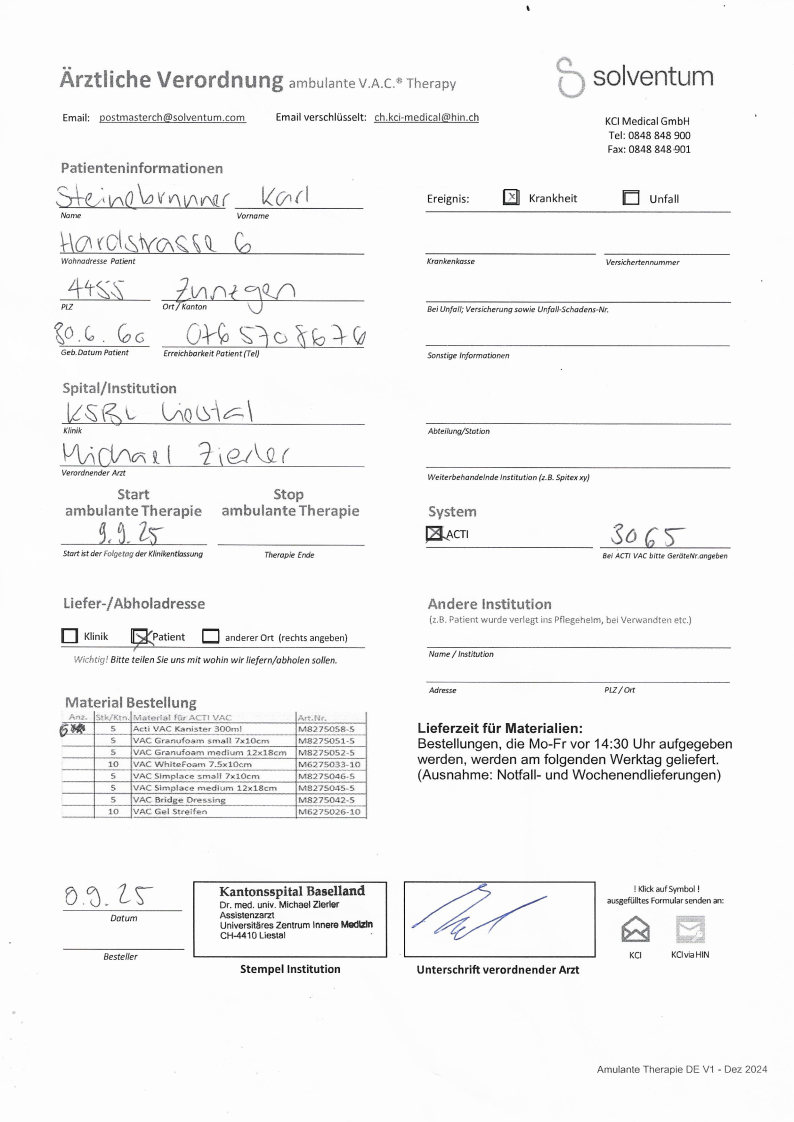 Ärztliche Verordnung ambulante V.A.C.® Therapy
solventum
Email: postmasterch@solventum.com Email verschlüsselt: ch.kci-medical@hin.ch
KCI Medical GmbH
Tel: 0848 848 900
Fax: 0848 848 901
Patienteninformationen
Steinebrunner Karl
Name Vorname
Ereignis: x Krankheit Unfall
Hardstrasse 6
Wohnadresse Patient
Krankenkasse Versichertennummer
4455 Zunzgen
PLZ Ort / Kanton
Bei Unfall; Versicherung sowie Unfall-Schadens-Nr.
30.6.60 076 570 86 76
Geb.Datum Patient Erreichbarkeit Patient (Tel)
Sonstige Informationen
Spital/Institution
KSBL Liestal
Klinik
Abteilung/Station
Michael Zierler
Verordnender Arzt
Weiterbehandelnde Institution (z.B. Spitex xy)
Start ambulante Therapie
Stop ambulante Therapie
9.9.25
Start ist der Folgetag der Klinikentlassung Therapie Ende
System
ACTI 3065
Bei ACTI VAC bitte GeräteNr.angeben
Liefer-/Abholadresse
Klinik Patient anderer Ort (rechts angeben)
Wichtig! Bitte teilen Sie uns mit wohin wir liefern/abholen sollen.
Andere Institution
(z.B. Patient wurde verlegt ins Pflegeheim, bei Verwandten etc.)
Name / Institution
Adresse PLZ / Ort
Material Bestellung
Anz. Stk/Ktn. Material für ACTI VAC Art.Nr.
5 Acti VAC Kanister 300ml M8275058-5
5 VAC Granufoam small 7x10cm M8275051-5
5 VAC Granufoam medium 12x18cm M8275052-5
10 VAC WhiteFoam 7.5x10cm M6275033-10
5 VAC Simplace small 7x10cm M8275046-5
5 VAC Simplace medium 12x18cm M8275045-5
5 VAC Bridge Dressing M8275042-5
10 VAC Gel Streifen M6275026-10
Lieferzeit für Materialien:
Bestellungen, die Mo-Fr vor 14:30 Uhr aufgegeben
werden, werden am folgenden Werktag geliefert.
(Ausnahme: Notfall- und Wochenendlieferungen)
8.9.25
Datum
Besteller
Kantonsspital Baselland
Dr. med. univ. Michael Zierler
Assistenzarzt
Universitäres Zentrum Innere Medizin
CH-4410 Liestal
Stempel Institution
Unterschrift verordnender Arzt
! Klick auf Symbol !
ausgefülltes Formular senden an:
KCI KCI via HIN
Amulante Therapie DE V1 - Dez 2024